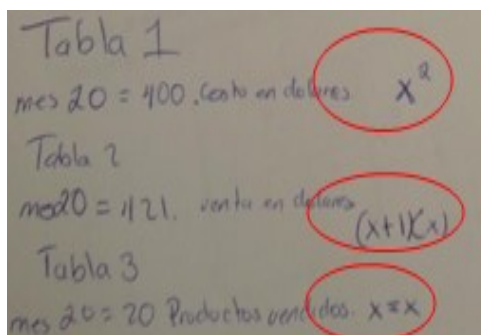 Tabla 1
mes 20 = 400. Costo en dolares x²
Tabla 2
mes 20 = 421. venta en dolares
(x+1)(x)
Tabla 3
mes 20 = 20 Productos vendidos. x=x